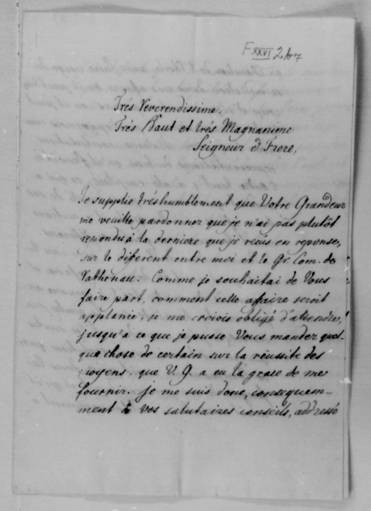 F XXVI 2 
Très Reverendissime,
Très Haut et très Magnanime
Seigneur & Frere,
Je supplie très humblement que Votre Grandeur
me veuille pardonner que je n'ai pas plutôt
repondu à la derniere que je reçus en reponse,
sur le diferent entre moi et le Gr. Com. de
Comme je souhaitai de Vous
faire part, comment cette affaire seroit
applanie, je me croiois obligé d'attendre,
jusqu'à ce que je pusse Vous mander quel-
que chose de certain sur la réussite des
moyens, que V. G. a eu la grace de me
fournir. Je me suis donc, consequem-
ment à vos salutaires conseils, addressé